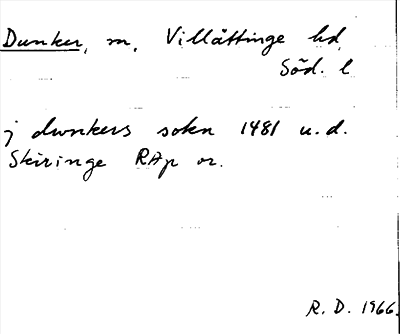 Dunker, m, Villåttinge hd,
Söd. l
j dwnkers sokn 1481 u.d.
Skiringe RAp or.
R. D. 1966.